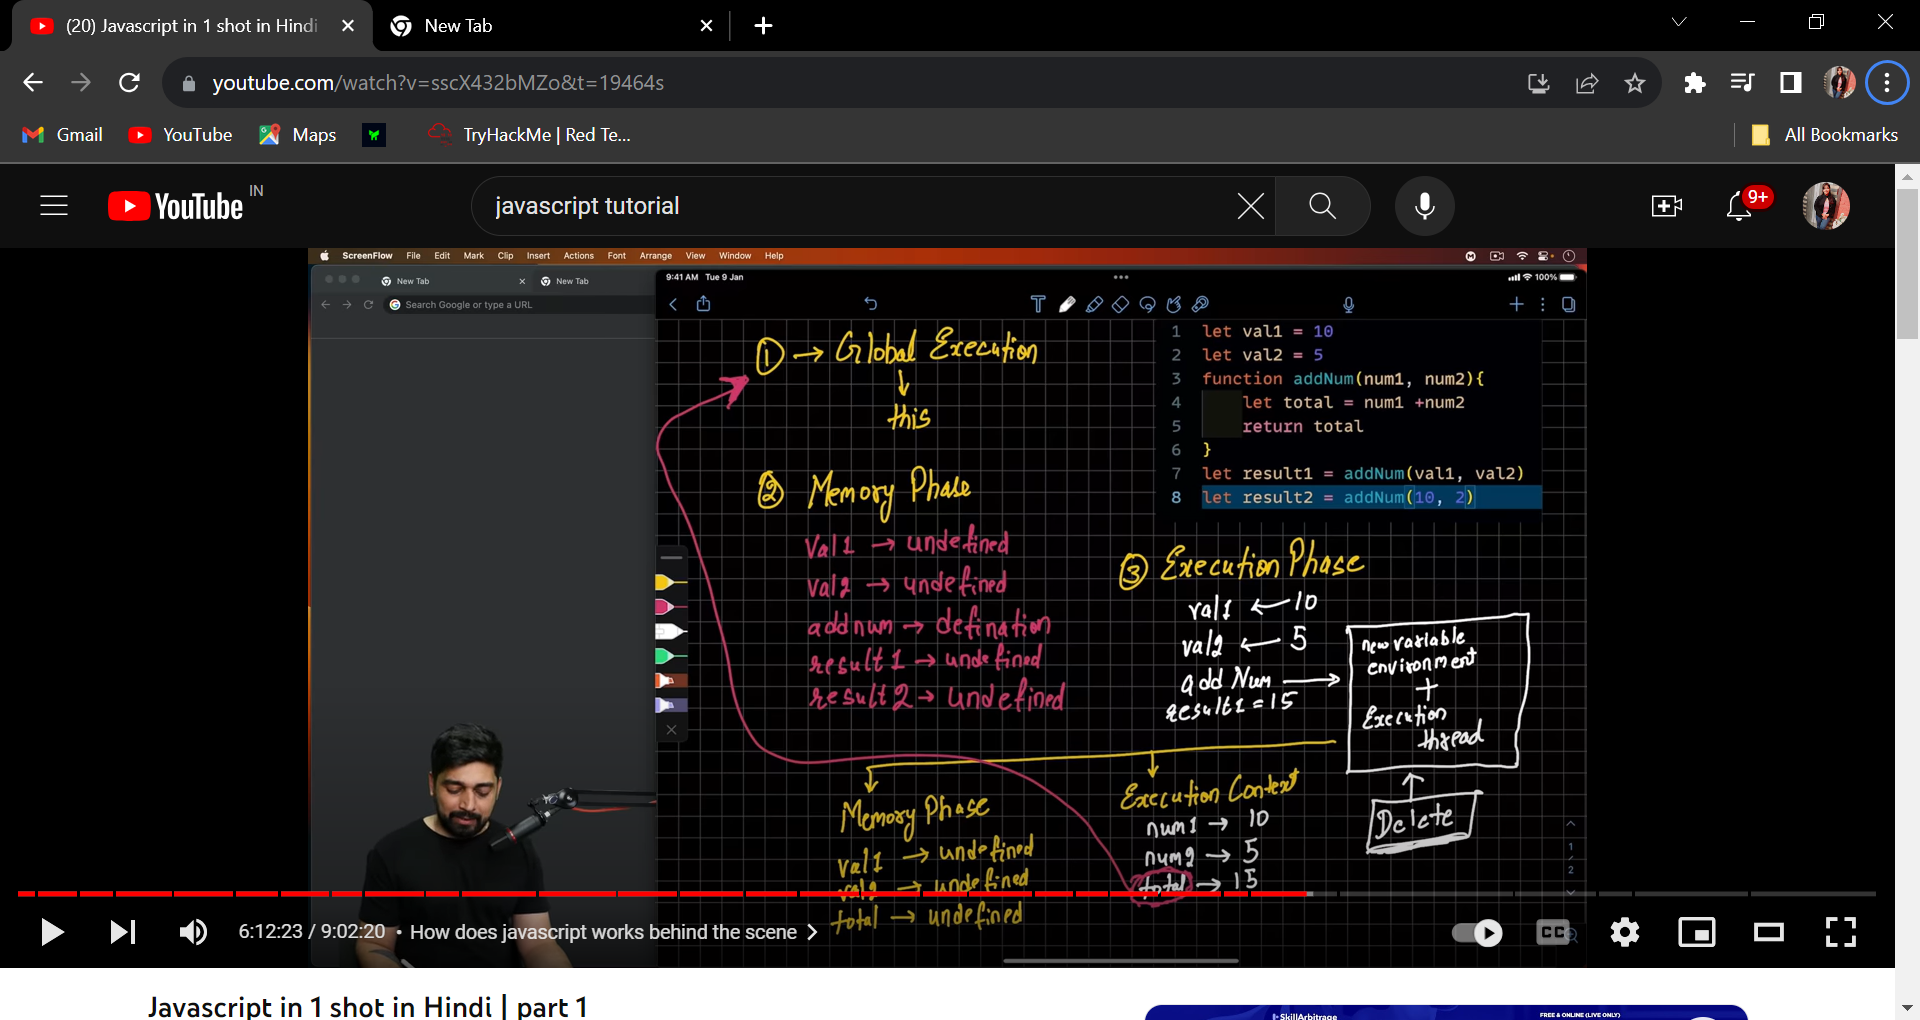 (20) Javascript in 1 shot in Hindi
New Tab
youtube.com/watch?v=sscX432bMZo&t=19464s
Gmail
YouTube
Maps
TryHackMe | Red Te...
All Bookmarks
YouTube IN
javascript tutorial
9+
ScreenFlow File Edit Mark Clip Insert Actions Font Arrange View Window Help
New Tab
New Tab
Search Google or type a URL
9:41 AM Tue 9 Jan
100%
1 → Global Execution
this
2 Memory Phase
val1 → undefined
val2 → undefined
addnum → defination
result1 → undefined
result2 → undefined
1 let val1 = 10
2 let val2 = 5
3 function addNum(num1, num2){
4 let total = num1 +num2
5 return total
6 }
7 let result1 = addNum(val1, val2)
8 let result2 = addNum(10, 2)
3 Execution Phase
val1 ← 10
val2 ← 5
add Num →
result1 = 15
new variable
environment
+
Execution
thread
Delete
Memory Phase
val1 → undefined
val2 → undefined
total → undefined
Execution Context
num1 → 10
num2 → 5
total → 15
1
2
6:12:23 / 9:02:20 • How does javascript works behind the scene >
CC
Javascript in 1 shot in Hindi | part 1
SkillArbitrage
FREE & ONLINE (LIVE ONLY)